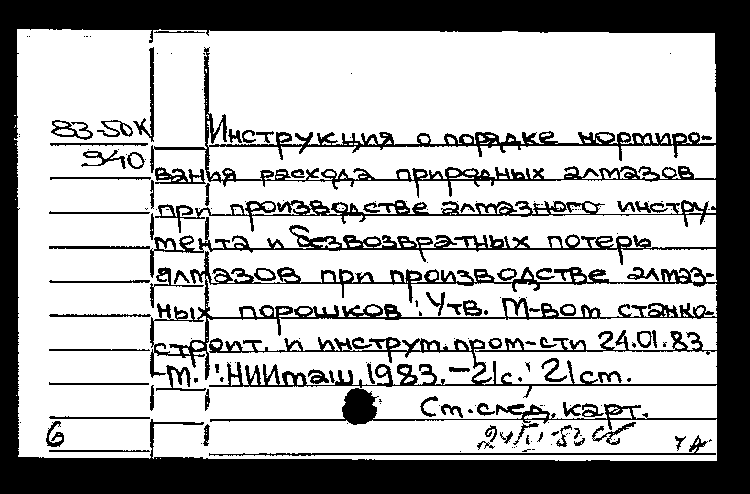 83-50К Инструкция о порядке нормиро-
940 вания расхода природных алмазов
при производстве алмазного инстру-
мента и безвозвратных потерь
алмазов при производстве алмаз-
ных порошков : Утв. М-вом станко-
строит. и инструм. пром-сти 24.01.83.
-М. : НИИмаш, 1983. - 21с.; 21 см.
См. след. карт.
6